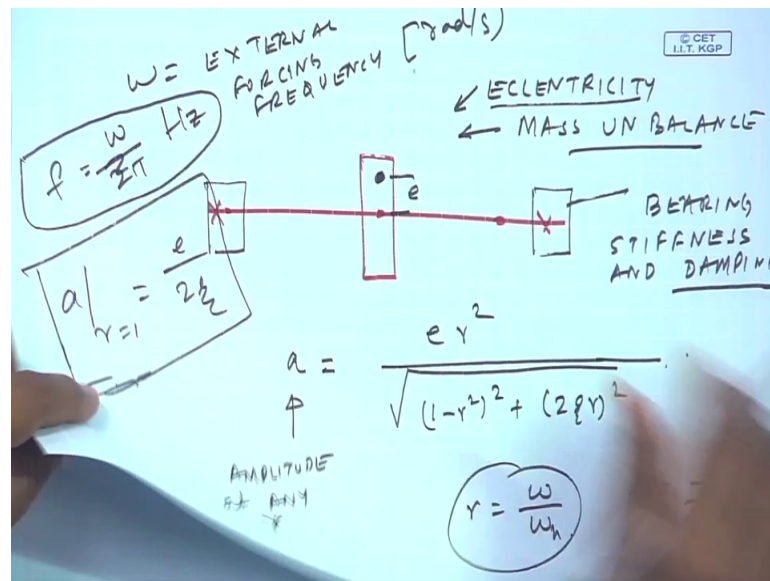 © CET
I.I.T. KGP
ω = EXTERNAL
FORCING
FREQUENCY
[rad/s)
ECLENTRICITY
MASS UNBALANCE
f = ω/2π Hz
e
BEARING
STIFFNESS
AND DAMPIN
a|r=1 = e/2ξ
a = er²/√((1-r²)² + (2ξr)²)
AMPLITUDE
at ANY
r
r = ω/ωn